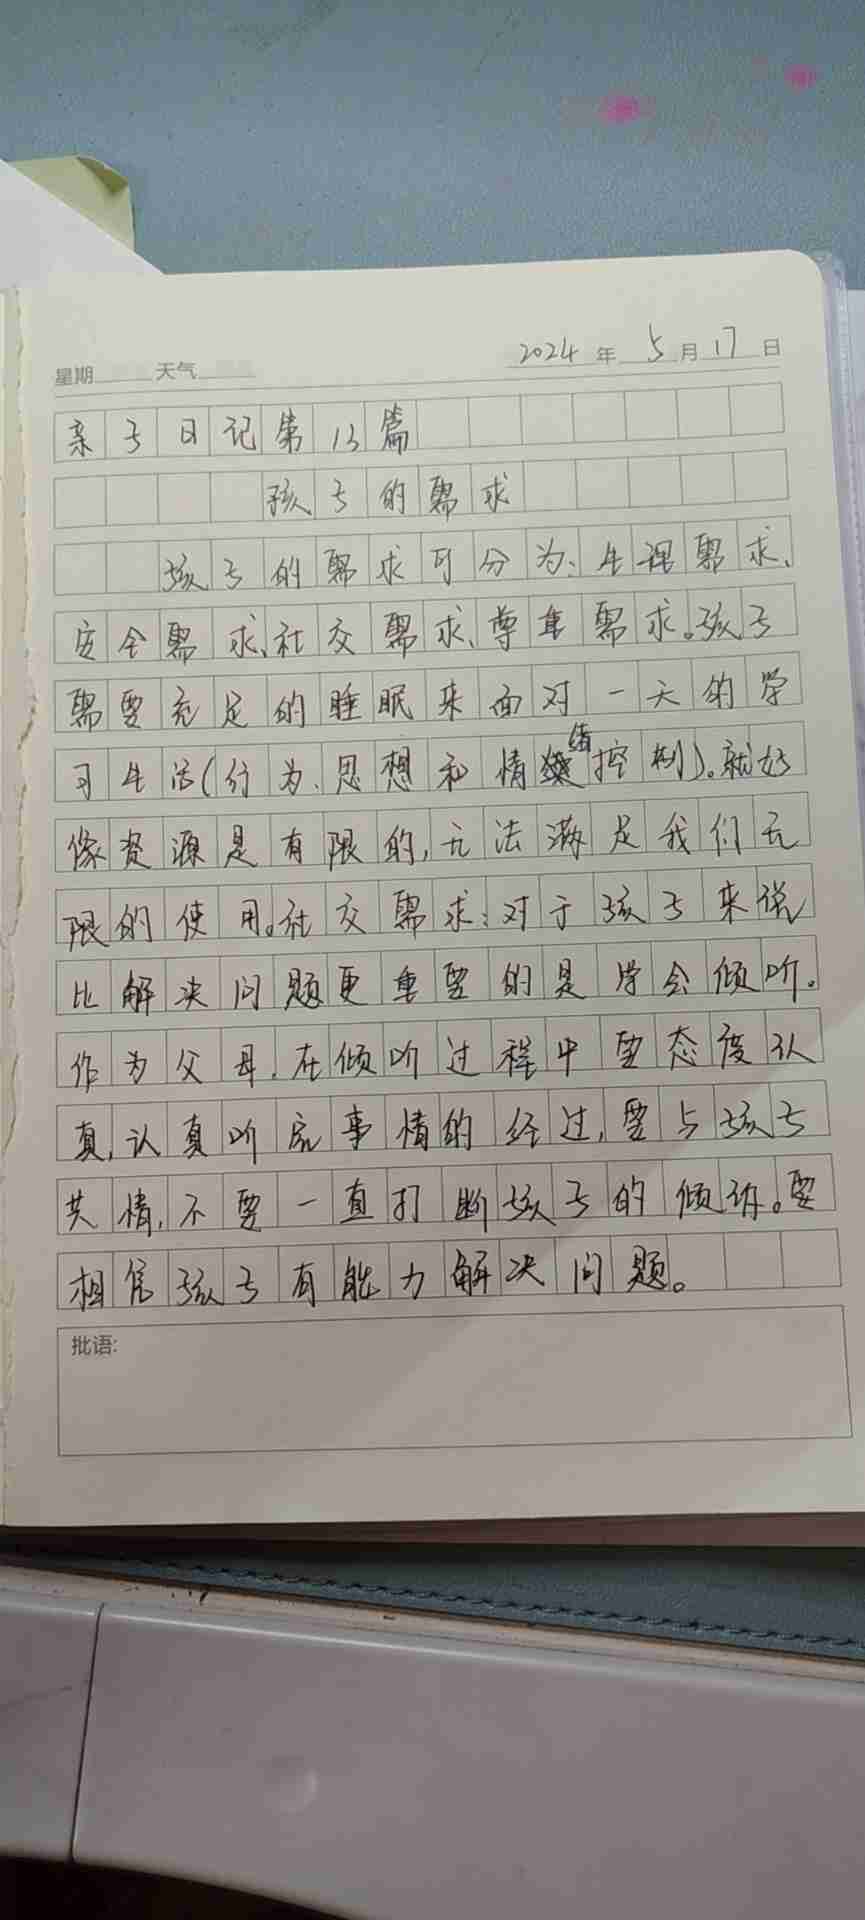 2024年5月17日
星期 天气
亲子日记第13篇
孩子的需求
孩子的需求可分为:生理需求、
安全需求、社交需求、尊重需求。孩子
需要充足的睡眠来面对一天的学
习生活(行为、思想和情绪控制)。就好
像资源是有限的,无法满足我们无
限的使用。社交需求:对于孩子来说
比解决问题更重要的是学会倾听。
作为父母,在倾听过程中要态度认
真,认真听完事情的经过,要与孩子
共情,不要一直打断孩子的倾诉。要
相信孩子有能力解决问题。
批语: